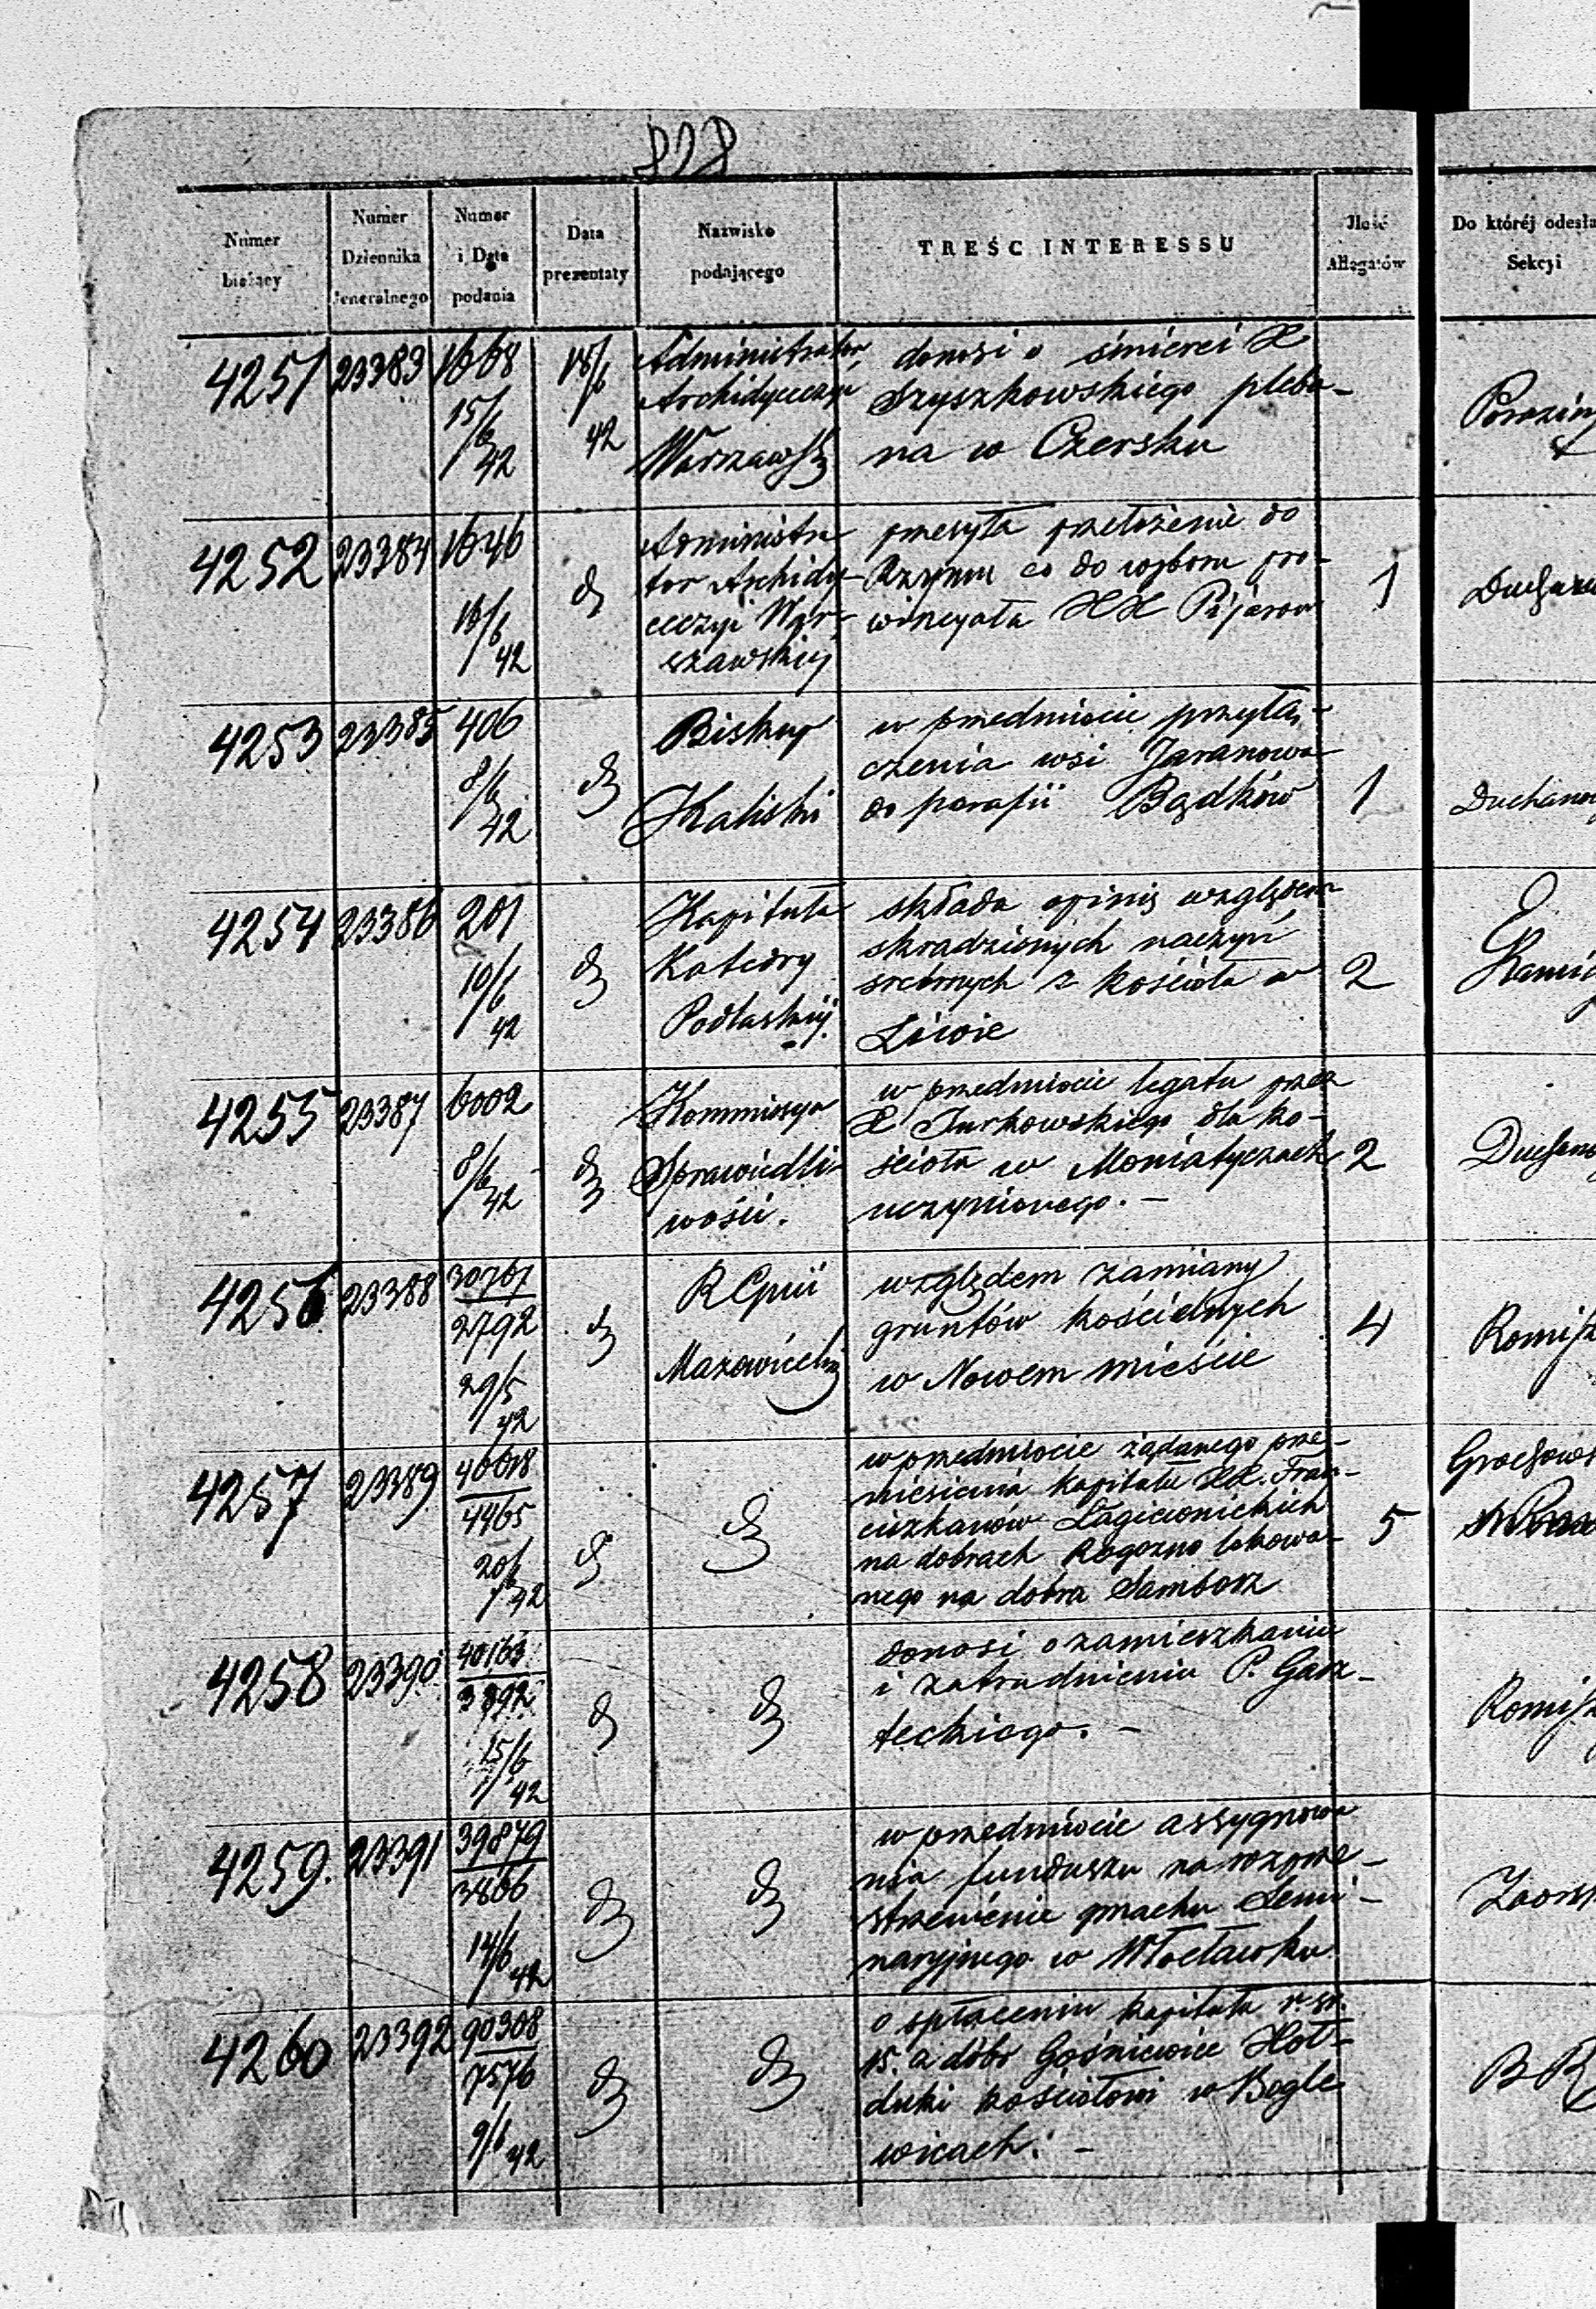 Numer bieżący
Numer Dziennika Jeneralnego
Numer i Data podania
Data prezentaty
Nazwisko podającego
TREŚC INTERESSU
Ilość Allegatów
Do któréj odesła
Sekcyi
4251 23383 1668 15/6 42 18/6 42
Administrator
Archidyecezyi
Warszaws
donosi o śmierci X
Szyszkowskiego pleba-
na w Czersku
4252 23384 1646 16/6 42 d
Administra
tor Archidy-
ecezyi War-
szawskiej
przesyła przełożenie do
Rzymu co do wyboru pro-
wincyała XX Pijarow
1
4253 23385 406 8/6 42 d
Biskup
Kaliski
w przedmiocie przyłą-
czenia wsi Jaranowa
do parafii Bądków
1
Duchano
4254 23386 201 10/6 42 d
Kapituła
Katedry
Podlaskiej
składa opinię względem
skradzionych naczyń
srebrnych z kościoła w
Liwie
2
4255 23387 6002 8/6 42 d
Kommissya
Sprawiedli-
wości.
w przedmiocie legatu przez
X Jurkowskiego dla ko-
ścioła w Moniatyczach
uczynionego. -
2
4256 23388 30767 2792 29/5 42 d
R Gpii
Mazowieckiej
względem zamiany
gruntów kościelnych
w Nowem mieście
4
4257 23389 40618 4465 20/6 42 d
d
w przedmiocie żądanego prze-
niesienia kapitału XX. Fran-
ciszkanów Łagiewnickich
na dobrach Rogozno lokowa-
nego na dobra Samborz
5
4258 23390 40163 3892 15/6 42 d
d
donosi o zamieszkaniu
i zatrudnieniu P. Gasz-
teckiego. -
4259. 23391 39879 3866 14/6 42 d
d
w przedmiocie assygnowa
nia funduszu na rozprze-
strzenienie gmachu Semi-
naryjnego w Włocławku
4260 23392 90308 7576 9/6 42 d
d
o spłaceniu kapitału r. sr.
15. z dóbr Gośniewice Hoł-
duki kościołowi w Bogle
wicach. -
B R